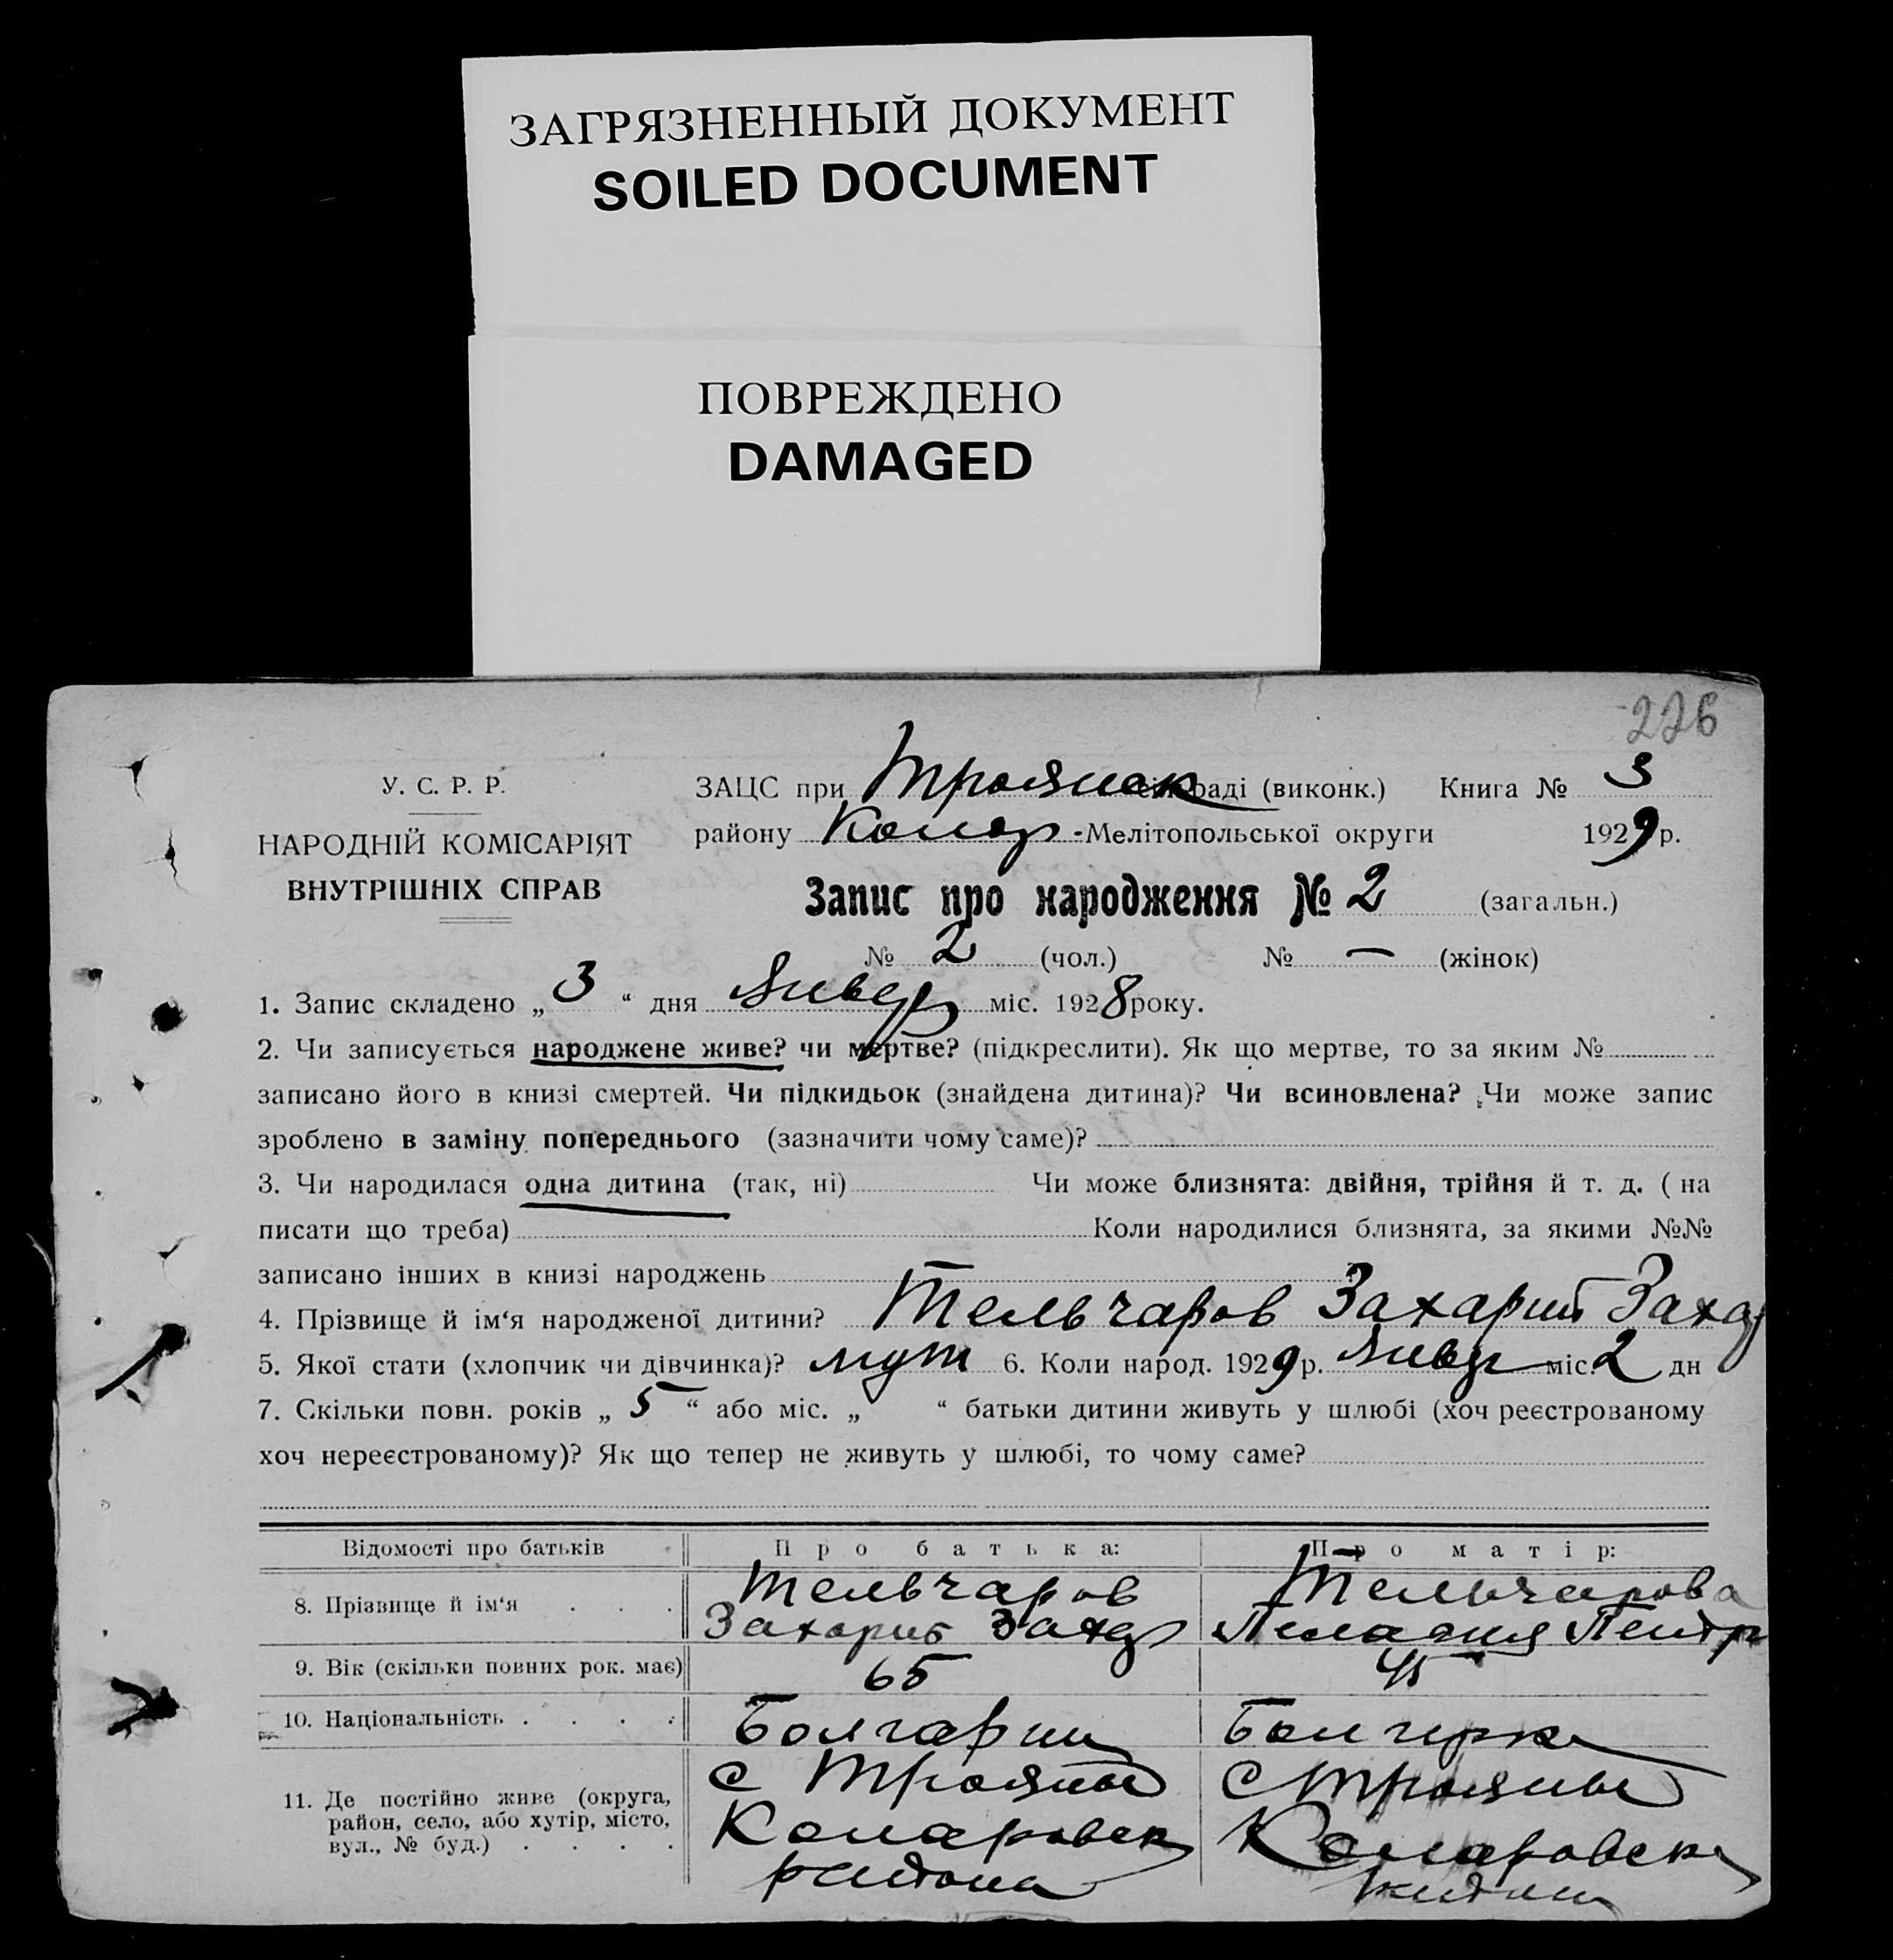 ЗАГРЯЗНЕННЫЙ ДОКУМЕНТ
SOILED DOCUMENT
ПОВРЕЖДЕНО
DAMAGED
226
У. С. Р. Р.
НАРОДНІЙ КОМІСАРІЯТ
ВНУТРІШНІХ СПРАВ
ЗАЦС при Троянск сільраді (виконк.) Книга № 3
району Колар -Мелітопольської округи 1929 р.
Запис про народження № 2 (загальн.)
№ 2 (чол.) № — (жінок)
1. Запис складено „ 3 “ дня Январ міс. 1928 року.
2. Чи записується народжене живе? чи мертве? (підкреслити). Як що мертве, то за яким №
записано його в книзі смертей. Чи підкидьок (знайдена дитина)? Чи всиновлена? Чи може запис
зроблено в заміну попереднього (зазначити чому саме)?
3. Чи народилася одна дитина (так, ні) Чи може близнята: двійня, трійня й т. д. ( на
писати що треба) Коли народилися близнята, за якими №№
записано інших в книзі народжень
4. Прізвище й ім‘я народженої дитини? Тельчаров Захарий Захар
5. Якої стати (хлопчик чи дівчинка)? муж 6. Коли народ. 1929 р. Январ міс. 2 дн
7. Скільки повн. років „ 5 “ або міс. „ “ батьки дитини живуть у шлюбі (хоч реєстрованому
хоч нереєстрованому)? Як що тепер не живуть у шлюбі, то чому саме?
Відомості про батьків Про батька: Про матір:
8. Прізвище й ім‘я . . . Тельчаров Тельчарова
Захарий Захар Пелагия Петр
9. Вік (скільки повних рок. має) 65 45
10. Національність . . . . Болгарин Болгарка
11. Де постійно живе (округа, с Трояны с Трояны
район, село, або хутір, місто, Коларовск Коларовск
вул., № буд.) . . . . района